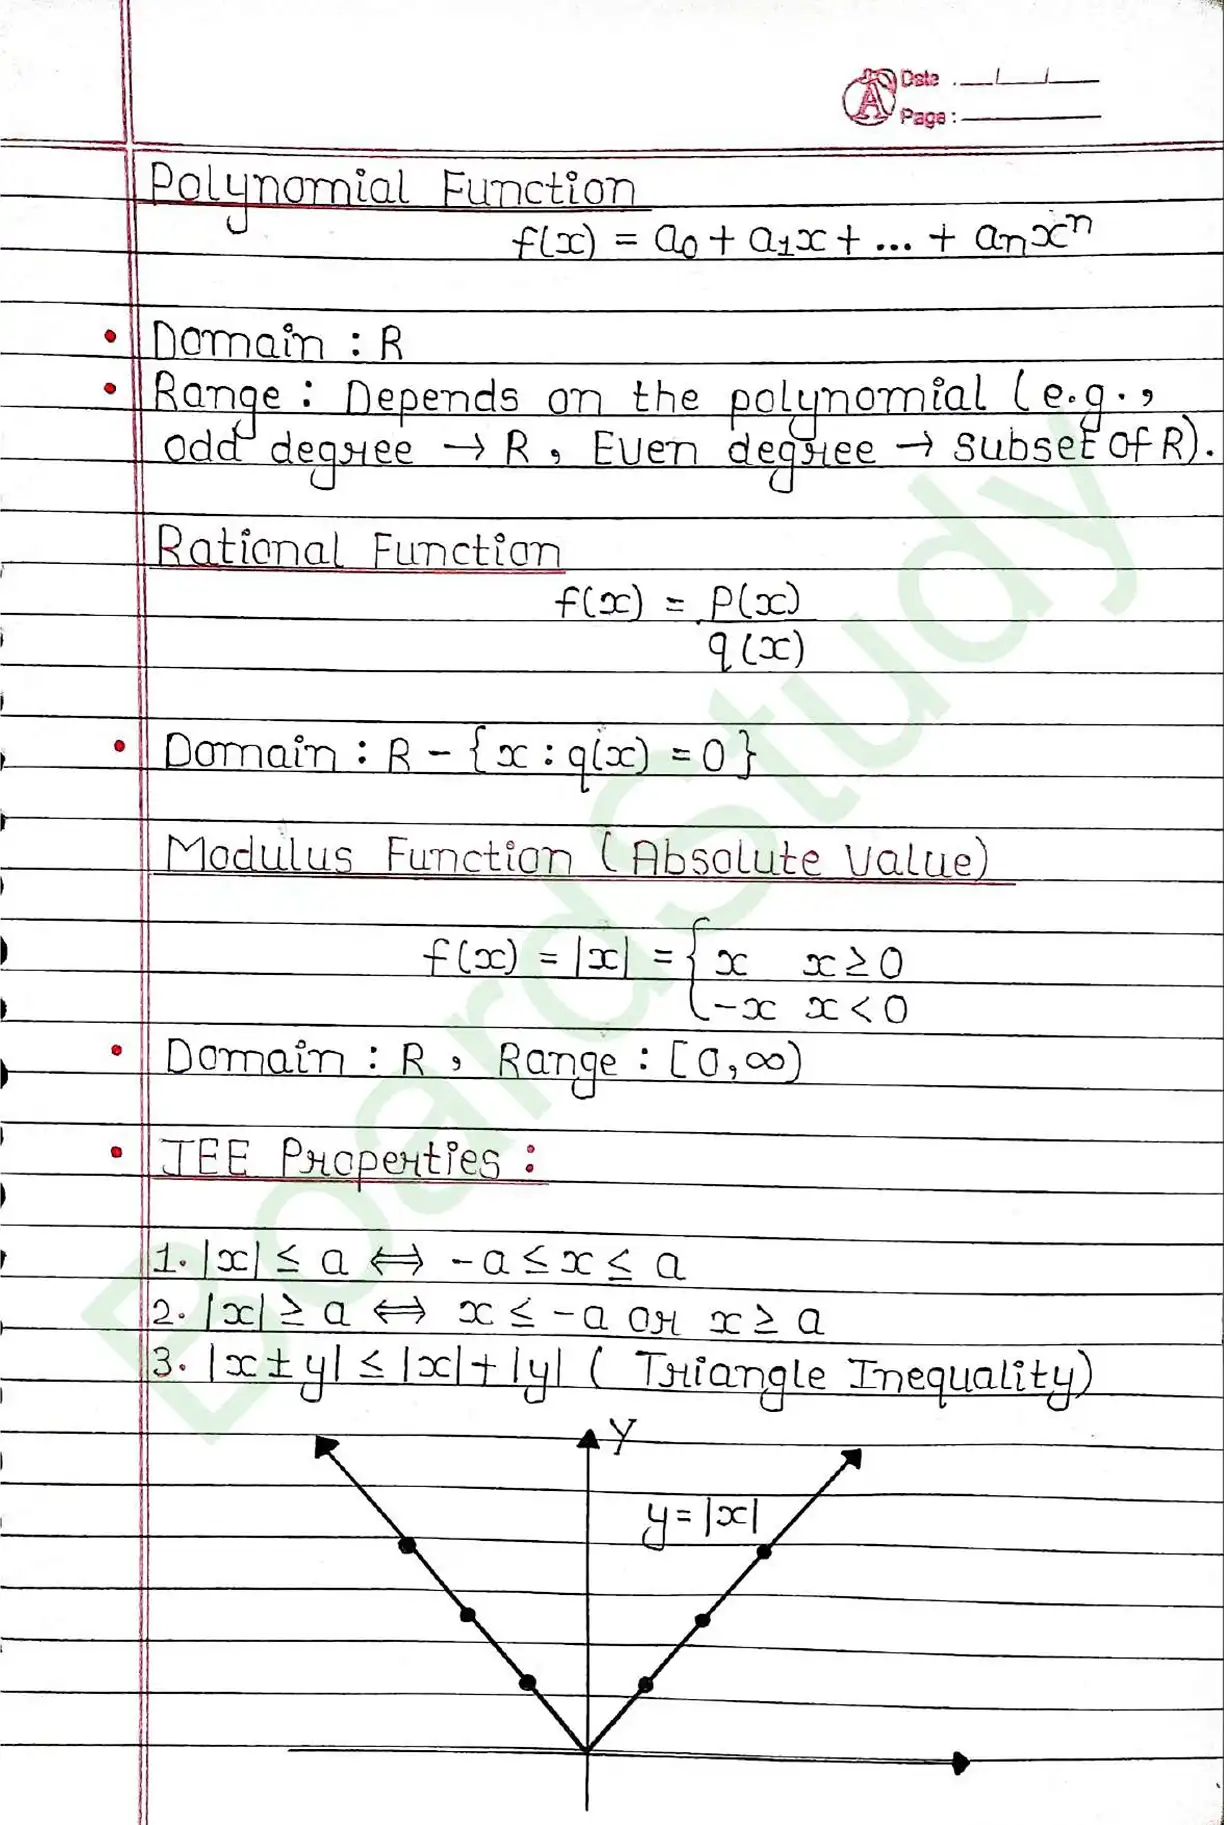 Date
Page :
Polynomial Function
f(x) = a₀ + a₁x + ... + aₙxⁿ
• Domain : R
• Range : Depends on the polynomial (e.g.,
odd degree → R, Even degree → subset of R).
Rational Function
f(x) = p(x)
q(x)
• Domain : R - {x : q(x) = 0}
Modulus Function (Absolute Value)
f(x) = |x| = { x x ≥ 0
-x x < 0
• Domain : R, Range : [0, ∞)
• JEE Properties :
1. |x| ≤ a ⟺ -a ≤ x ≤ a
2. |x| ≥ a ⟺ x ≤ -a or x ≥ a
3. |x ± y| ≤ |x| + |y| ( Triangle Inequality)
Y
y = |x|
BoardStudy